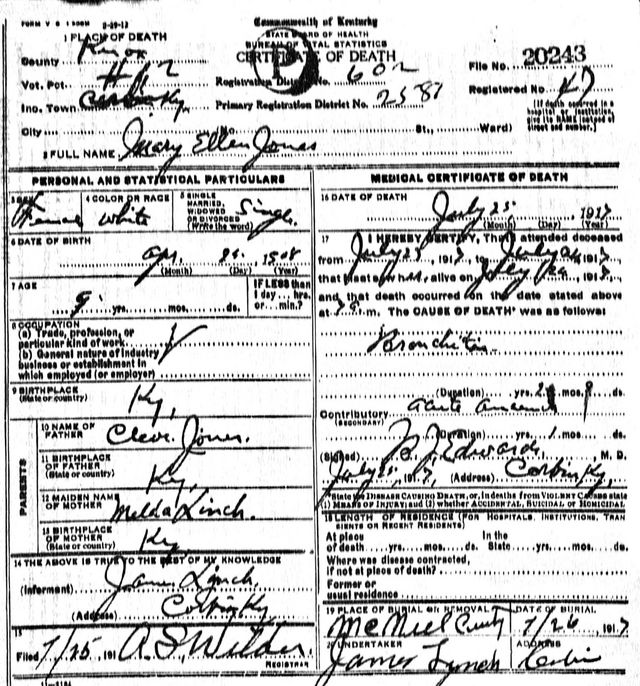 FORM V S 1 500M 3-29-12
Commonwealth of Kentucky
STATE BOARD OF HEALTH
BUREAU OF VITAL STATISTICS
CERTIFICATE OF DEATH
1 PLACE OF DEATH
County Knox
Vot. Pct. #12
Inc. Town Corbin Ky.
City
Registration District No. 602
Primary Registration District No. 2587
File No. 20243
Registered No. 47
(If death occurred in a hospital or institution, give its NAME instead of street and number.)
No. St., Ward)
2 FULL NAME Mary Ellen Jones
PERSONAL AND STATISTICAL PARTICULARS
3 SEX Female
4 COLOR OR RACE White
5 SINGLE MARRIED, WIDOWED OR DIVORCED (Write the word) Single
6 DATE OF BIRTH
Apr. 1908
(Month) (Day) (Year)
7 AGE
9 yrs. mos. ds.
IF LESS than 1 day... hrs. or... min.?
8 OCCUPATION
(a) Trade, profession, or particular kind of work
(b) General nature of industry business or establishment in which employed (or employer)
9 BIRTHPLACE (State or country) Ky,
PARENTS
10 NAME OF FATHER Cleve Jones.
11 BIRTHPLACE OF FATHER (State or country) Ky,
12 MAIDEN NAME OF MOTHER Melda Linch.
13 BIRTHPLACE OF MOTHER (State or country) Ky,
14 THE ABOVE IS TRUE TO THE BEST OF MY KNOWLEDGE
(Informant) Lynch,
(Address) Corbin Ky
15
Filed 7/25, 191 A. S. Wilder
REGISTRAR
11-3184
MEDICAL CERTIFICATE OF DEATH
16 DATE OF DEATH
July 25, 1917
(Month) (Day) (Year)
17 I HEREBY CERTIFY, That I attended deceased
from July 23, 1917, to July 24 1917
that I last saw h alive on July 24 1917
and that death occurred on the date stated above
at m. The CAUSE OF DEATH* was as follows:
Bronchitis
(Duration) yrs. mos. ds.
Contributory (SECONDARY) Acute
(Duration) yrs. mos. ds.
(Signed) B. J. Edwards, M. D.
July 25, 1917, (Address) Corbin Ky,
*State the DISEASE CAUSING DEATH, or, in deaths from VIOLENT CAUSES state (1) MEANS OF INJURY; and (2) whether ACCIDENTAL, SUICIDAL OR HOMICIDAL
18 LENGTH OF RESIDENCE (FOR HOSPITALS, INSTITUTIONS, TRANSIENTS OR RECENT RESIDENTS)
At place of death yrs. mos. ds. In the State yrs. mos. ds.
Where was disease contracted, if not at place of death?
Former or usual residence
19 PLACE OF BURIAL OR REMOVAL DATE OF BURIAL
McNeel 7/26 1917
20 UNDERTAKER ADDRESS
James Lynch Corbin